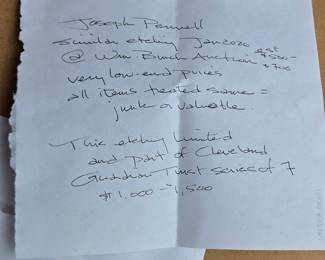 Joseph Pennell
similar etching Jan 2020 est
@ Wm. Bunch Auction $500-
very low-end prices $700
all items treated same =
junk or valuable.
This etching limited
and part of Cleveland
Guardian Trust series of 7
$1,000 - 1,500